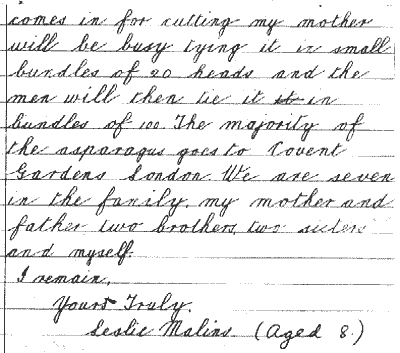 comes in for cutting my mother
will be busy tying it in small
bundles of 20 heads and the
men will then tie it it in
bundles of 100. The majority of
the asparagus goes to Covent
Gardens London. We are seven
in the family, my mother and
father two brothers, two sisters
and myself.
I remain,
Yours Truly.
Leslie Malins. (Aged 8.)